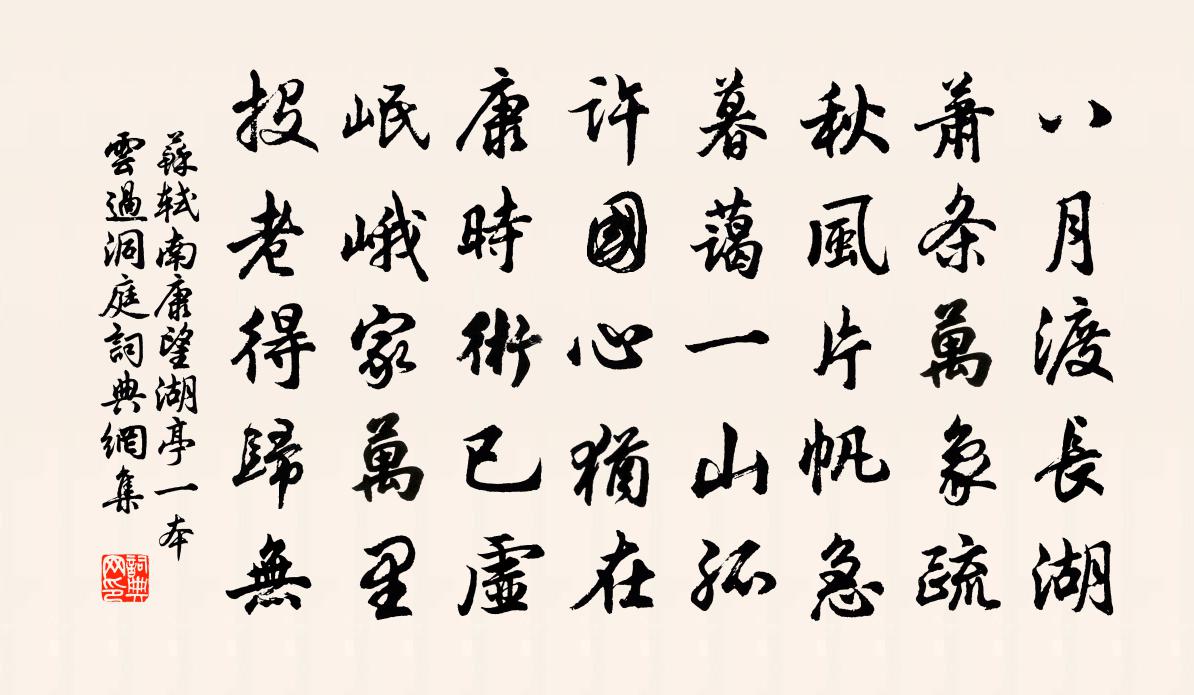 八月渡長湖
蕭条萬象疏
秋風片帆急
暮藹一山孤
許國心猶在
康時術已虛
岷峨家萬里
投老得歸無
蘇軾南康望湖亭一本
雲過洞庭詞典網集
詞典网印